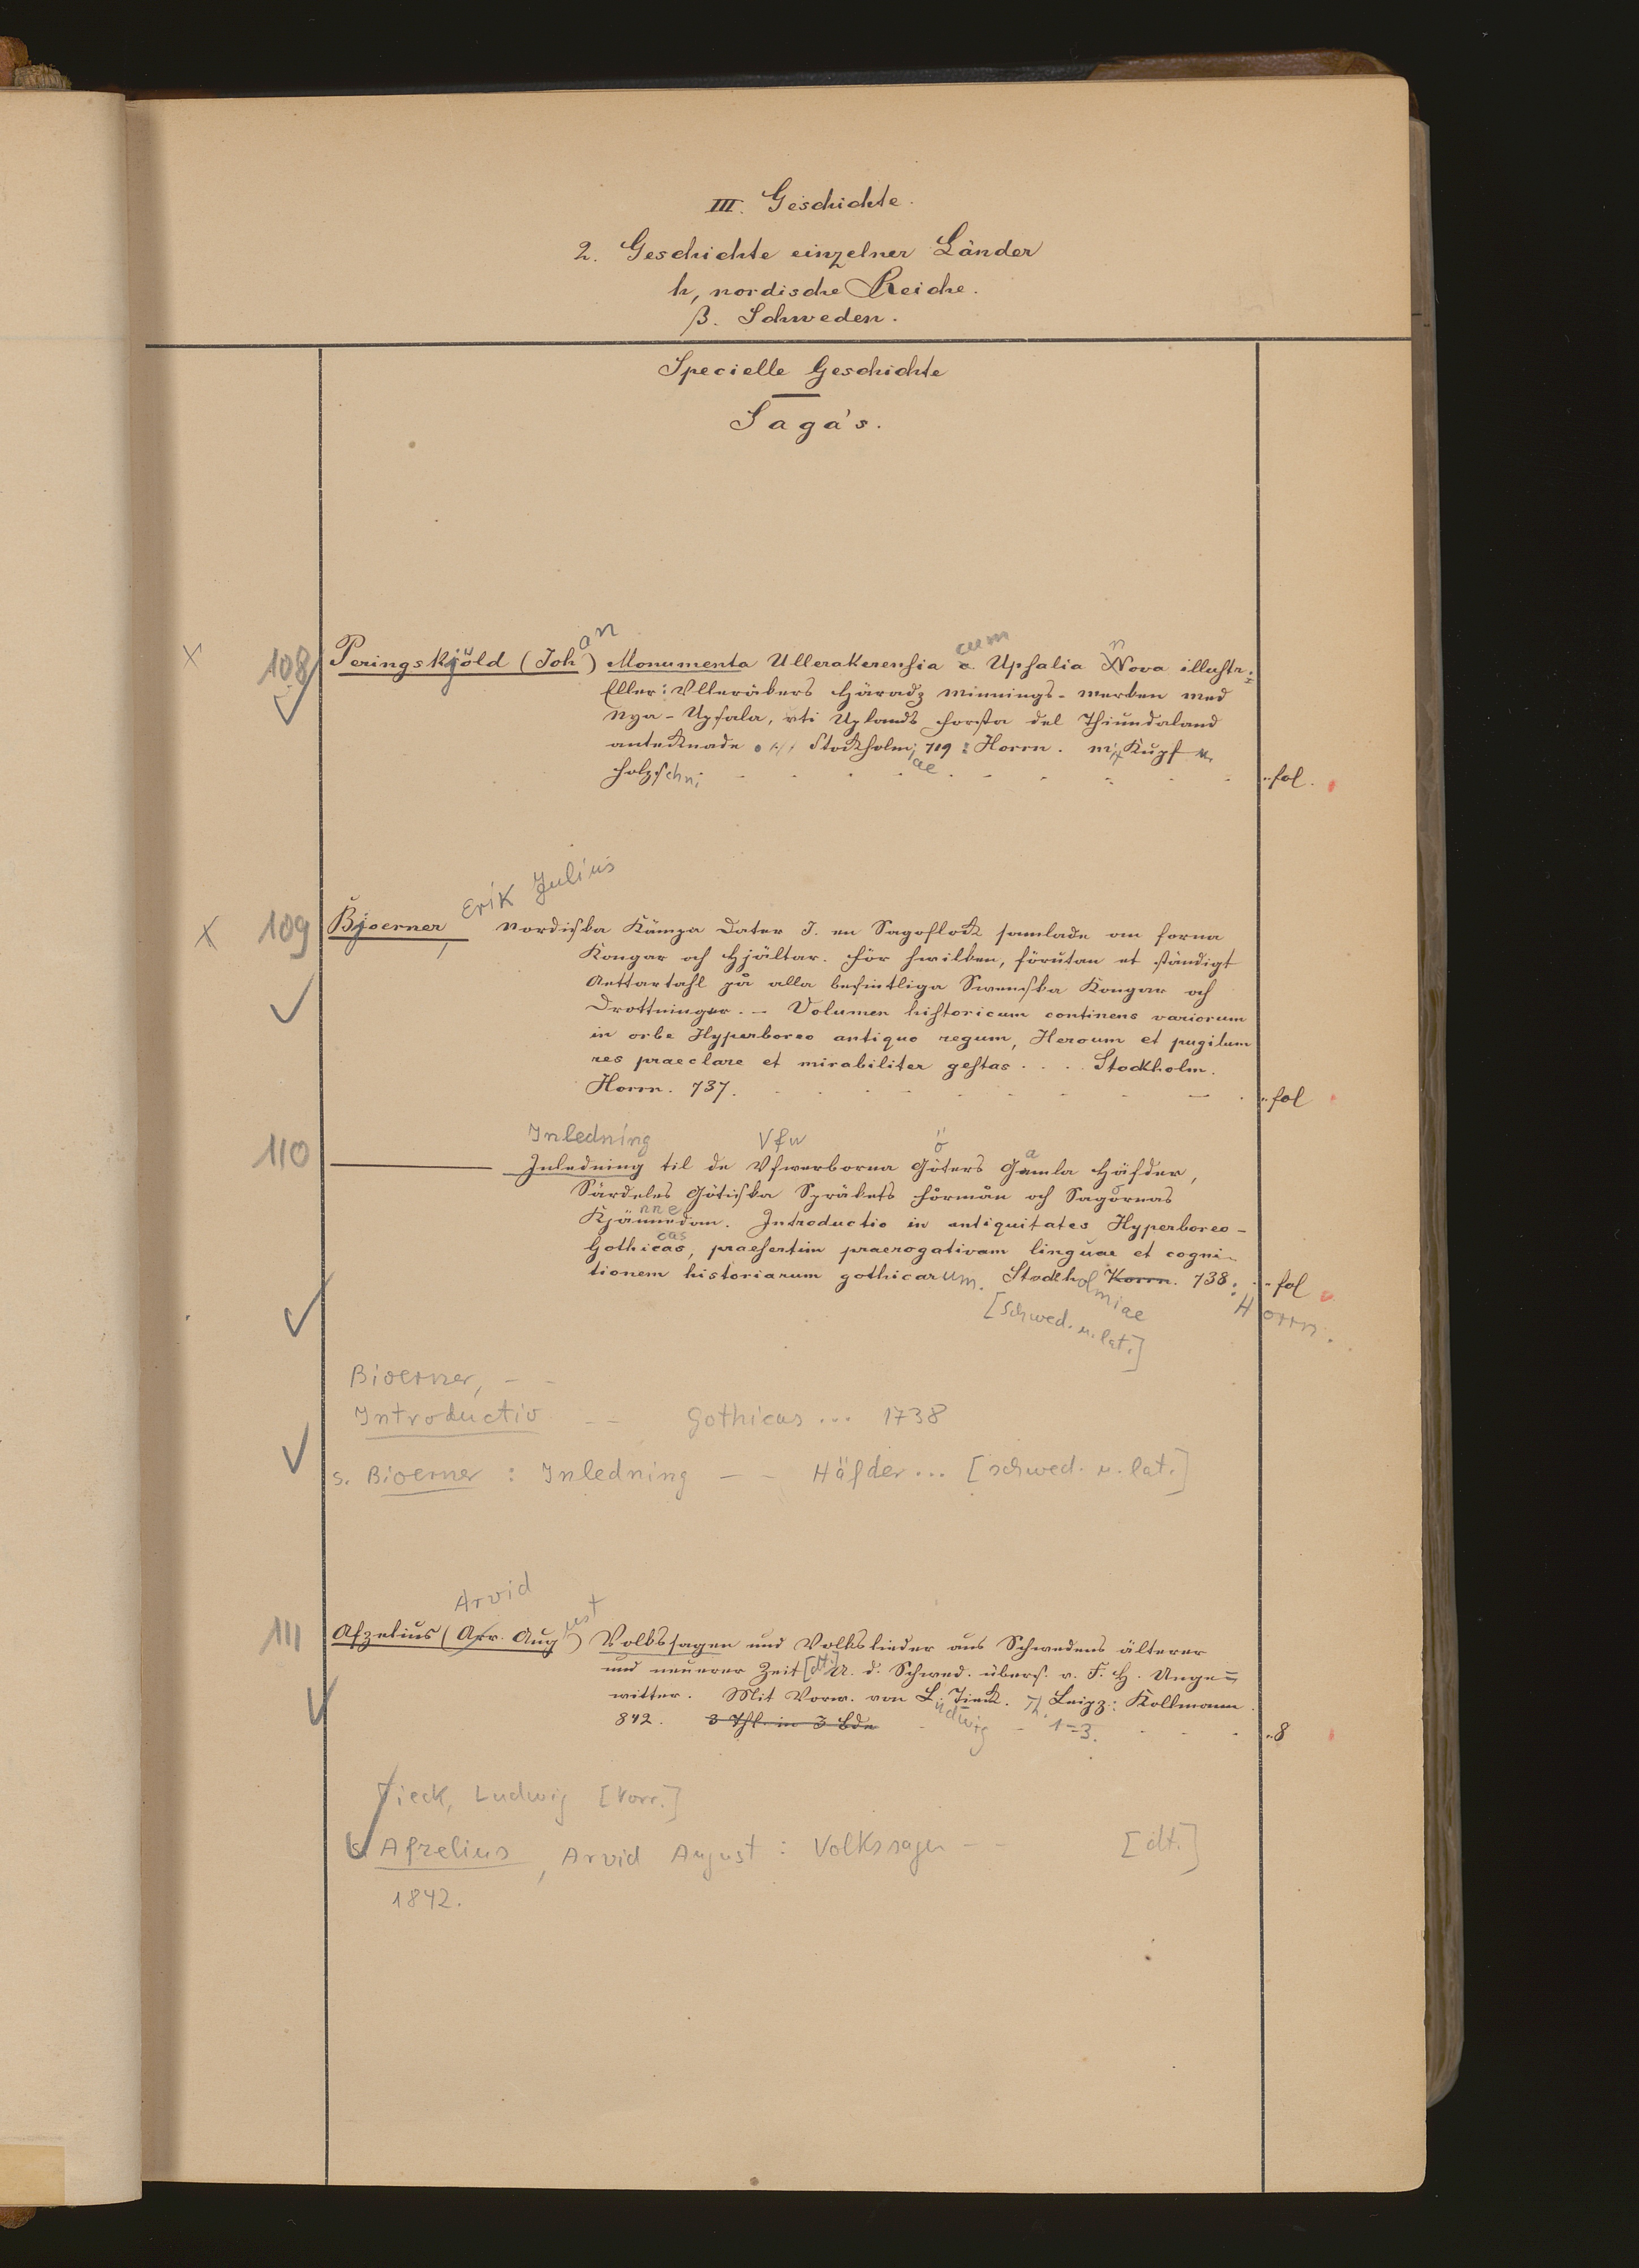 III. Geschichte.
2. Geschichte einzelner Länder
h, nordische Reiche.
β. Schweden.
Specielle Geschichte
Saga's.
108 Peringskjöld (Johan) Monumenta Ullerakerensia cum Upsalia Nova illustr.
Eller: Ulleråkers Häradz Minnings-merken med
Nya-Upsala, uti Uplands forsta del Thiundaland
anteknade Stockholmiae 719: Horrn. m. Kupf u.
Holzschn. fol.
109 Bjoerner, Erik Julius Nordiska Kämpa Dater I. en Sagoflock samlade om forna
Kongar och Hjältar. För hwilken, förutan et ständigt
Aettartahl på alla befintliga Swenska Kongar och
Drottningar. – Volumen historicum continens variorum
in orbe Hyperboreo antiquo regum, Heroum et pugilum
res praeclare et mirabiliter gestas . . . . Stockholm.
Horrn. 737. fol
Inledning Vfw ö
110 ——— Inledning til de Vfwerborna Göters Gamla Häfder,
Särdeles Götiska Språkets förmån och Sagornas
Kjännedom. Introductio in antiquitates Hyperboreo-
Gothicas, praesertim praerogativam linguae et cogni-
tionem historiarum gothicarum. Stockholmiae Korrn. 738: Horrn. fol
[schwed. u. lat.]
Bioerner, – –
Introductio – – Gothicas ... 1738
s. Bioerner : Inledning – – Häfder ... [schwed. u. lat.]
111 Afzelius (Arvid August) Volkssagen und Volkslieder aus Schwedens älterer
und neuerer Zeit [dt.] A. d. Schwed. übers. v. F. H. Unge=
witter. Mit Vorw. von Ludwig Tieck. Th. 1=3. Leipz: Kollmann.
842. 3 Thl. in 3 Bde 8
Tieck, Ludwig [Vorr.]
s. Afzelius, Arvid August : Volkssagen – – [dt.]
1842.